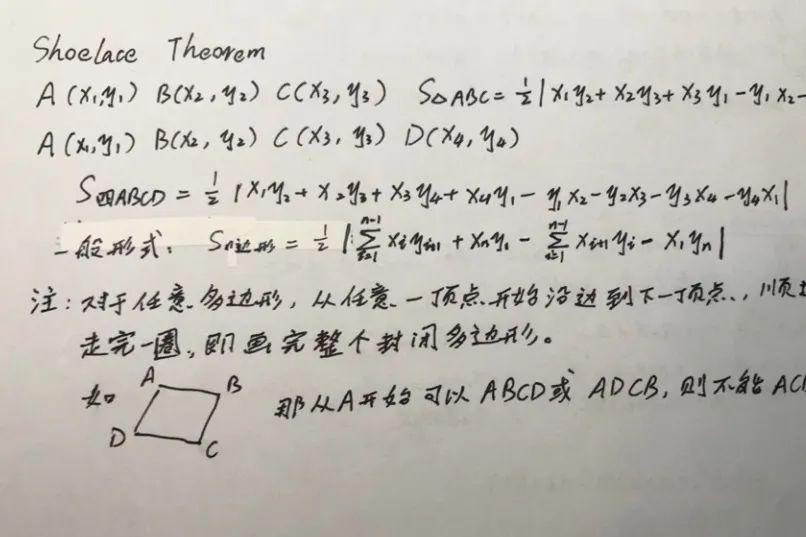 Shoelace Theorem
A(x₁,y₁) B(x₂,y₂) C(x₃,y₃) S△ABC=½|x₁y₂+x₂y₃+x₃y₁-y₁x₂-
A(x₁,y₁) B(x₂,y₂) C(x₃,y₃) D(x₄,y₄)
S四ABCD=½|x₁y₂+x₂y₃+x₃y₄+x₄y₁-y₁x₂-y₂x₃-y₃x₄-y₄x₁|
一般形式: Sn边形=½|∑ᵢ₌₁ⁿ⁻¹xᵢyᵢ₊₁+xₙy₁-∑ᵢ₌₁ⁿ⁻¹xᵢ₊₁yᵢ-x₁yₙ|
注:对于任意多边形,从任意一顶点开始沿边到下一顶点,顺
走完一圈,即画完整个封闭多边形。
如 A B 那从A开始可以ABCD或ADCB,则不能AC
D C